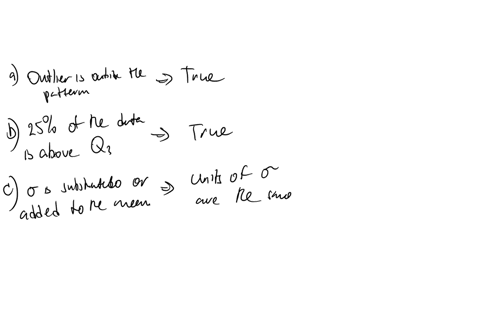 a) Outlier is outside the => True
pattern
b) 25% of the data => True
is above Q3
c) σ is substrated or => units of σ
added to the mean are the same